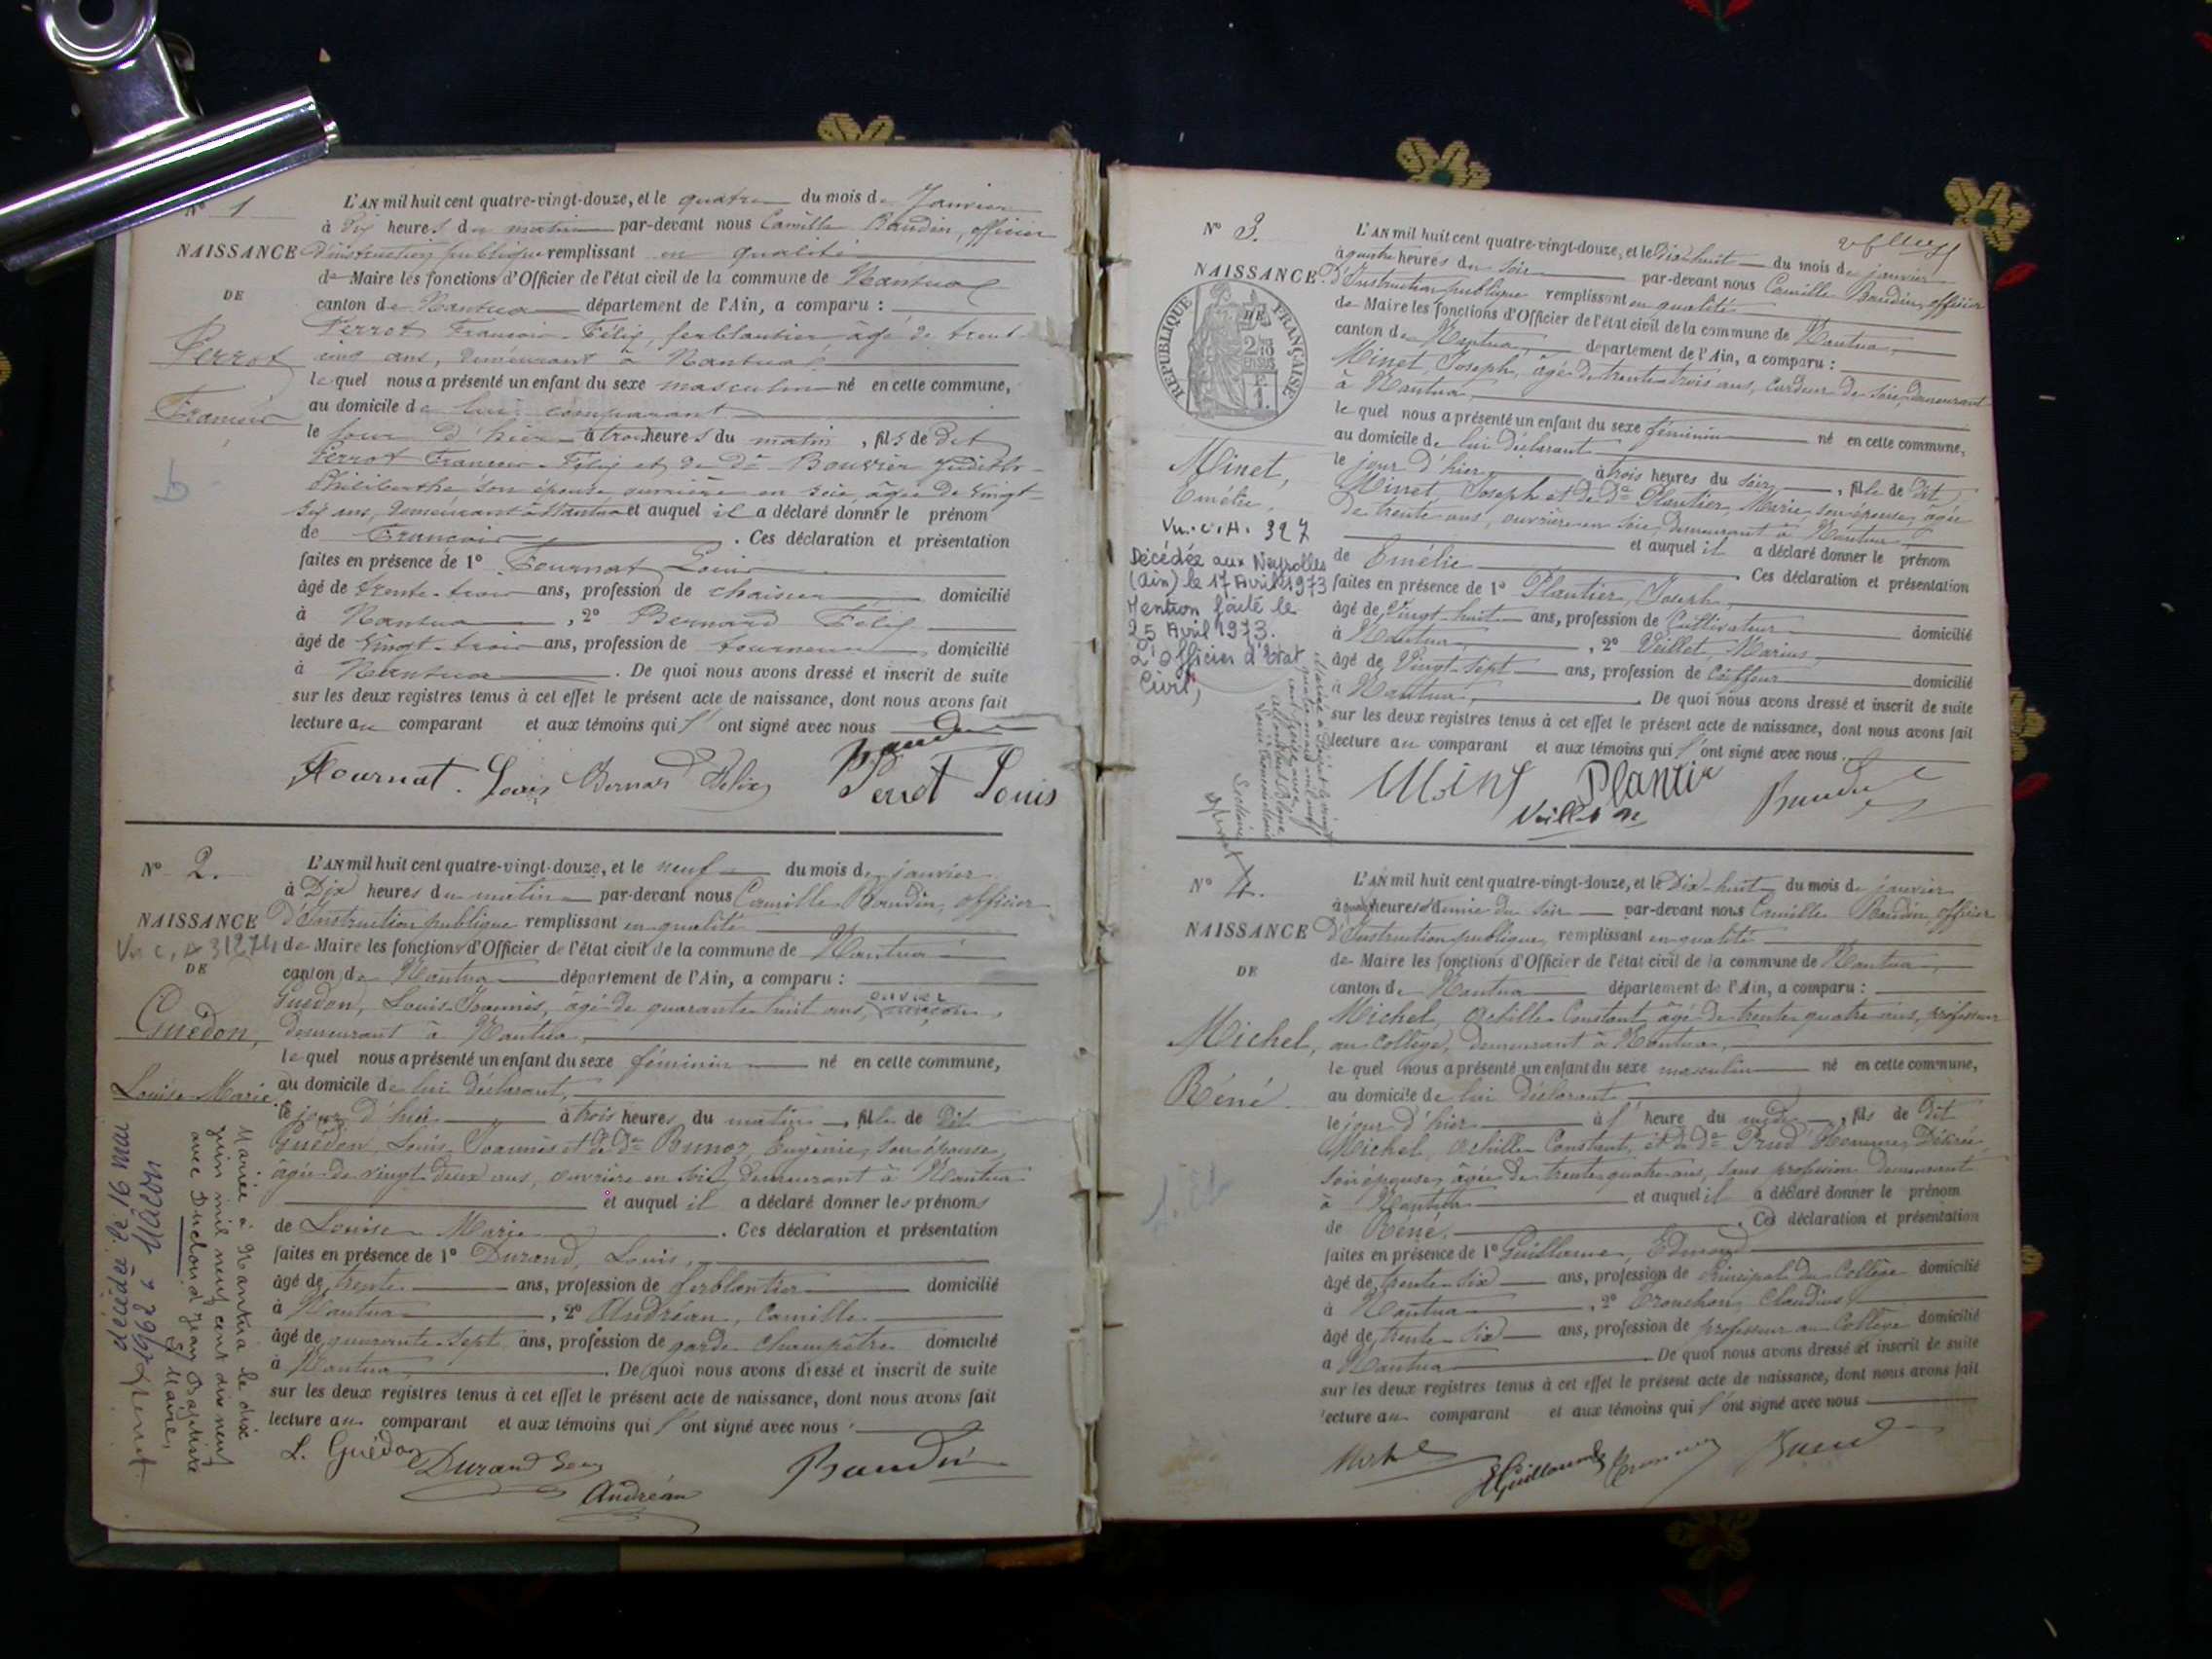 N° 1
NAISSANCE
DE
Perrot
François
L'AN mil huit cent quatre-vingt-douze, et le quatre du mois de Janvier
à Dix heures du matin par-devant nous Camille Baudin, officier
d'instruction publique remplissant en qualité
de Maire les fonctions d'Officier de l'état civil de la commune de Nantua
canton de Nantua département de l'Ain, a comparu :
Perrot François-Félix, ferblantier, âgé de trente
cinq ans, demeurant à Nantua
lequel nous a présenté un enfant du sexe masculin né en cette commune,
au domicile de lui comparant
le jour d'hier à trois heures du matin, fils de dit
Perrot François-Félix et de De Bouvier Judith-
Philiberthe son épouse ouvrière en soie, âgée de vingt-
six ans, demeurant à Nantua et auquel il a déclaré donner le prénom
de François. Ces déclaration et présentation
faites en présence de 1° Fournat Louis
âgé de trente-trois ans, profession de chaisier domicilié
à Nantua, 2° Bernard Félix
âgé de vingt-trois ans, profession de tourneur, domicilié
à Nantua. De quoi nous avons dressé et inscrit de suite
sur les deux registres tenus à cet effet le présent acte de naissance, dont nous avons fait
lecture au comparant et aux témoins qui l'ont signé avec nous
Baudin
Fournat Louis Bernard Félix Perrot Louis
N° 2.
NAISSANCE
DE
Guédon,
Louise Marie.
Mariée à Nantua le dix
juin mil neuf cent dix neuf
avec Duclou d Jean Baptiste
Le Maire,
décédée le 16 mai
1962 à Mâcon
L'AN mil huit cent quatre-vingt-douze, et le neuf du mois de janvier
à Dix heures du matin par-devant nous Camille Baudin, officier
d'Instruction publique remplissant en qualité
de Maire les fonctions d'Officier de l'état civil de la commune de Nantua
canton de Nantua département de l'Ain, a comparu :
Guédon, Louis Joannès, âgé de quarante huit ans,
demeurant à Nantua,
lequel nous a présenté un enfant du sexe féminin né en cette commune,
au domicile de lui déclarant,
le jour d'hier à trois heures du matin, fille de Dit
Guédon, Louis Joannès et de De Bunoz, Eugénie, son épouse,
âgée de vingt deux ans, ouvrière en soie, demeurant à Nantua
et auquel il a déclaré donner les prénoms
de Louise Marie. Ces déclaration et présentation
faites en présence de 1° Durand, Louis,
âgé de trente ans, profession de ferblantier domicilié
à Nantua, 2° Andréan, Camille
âgé de quarante sept ans, profession de garde champêtre domicilié
à Nantua. De quoi nous avons dressé et inscrit de suite
sur les deux registres tenus à cet effet le présent acte de naissance, dont nous avons fait
lecture au comparant et aux témoins qui l'ont signé avec nous
L. Guédon Durand Louis Baudin
Andréan
N° 3.
NAISSANCE
REPUBLIQUE FRANÇAISE
Minet,
Emélie,
Vu. c. A. 327
Décédée aux Neyrolles
(Ain) le 17 Avril 1973
Mention faite le
25 Avril 1973.
L'officier d'Etat
Civil,
L'AN mil huit cent quatre-vingt-douze, et le Dix huit du mois de janvier
à quatre heures du soir par-devant nous Camille Baudin, officier
d'Instruction publique remplissant en qualité
de Maire les fonctions d'Officier de l'état civil de la commune de Nantua,
canton de Nantua département de l'Ain, a comparu :
Minet, Joseph, âgé de trente trois ans, cardeur de soie, demeurant
à Nantua,
lequel nous a présenté un enfant du sexe féminin né en cette commune,
au domicile de lui déclarant
le jour d'hier, à trois heures du soir, fille de Dit
Minet, Joseph et de De Plantier, Marie son épouse, âgée
de trente ans, ouvrière en soie, demeurant à Nantua
et auquel il a déclaré donner le prénom
de Emélie. Ces déclaration et présentation
faites en présence de 1° Plantier, Joseph,
âgé de vingt huit ans, profession de Cultivateur domicilié
à Nantua, 2° Veillet, Marius,
âgé de Vingt sept ans, profession de Coiffeur domicilié
à Nantua,. De quoi nous avons dressé et inscrit de suite
sur les deux registres tenus à cet effet le présent acte de naissance, dont nous avons fait
lecture au comparant et aux témoins qui l'ont signé avec nous.
Minet Plantier Baudin
N° 4.
NAISSANCE
DE
Michel,
Réné.
L'AN mil huit cent quatre-vingt-douze, et le Dix-huit du mois de janvier
à quatre heures et demie du soir par-devant nous Camille Baudin, officier
d'Instruction publique, remplissant en qualité
de Maire les fonctions d'Officier de l'état civil de la commune de Nantua,
canton de Nantua département de l'Ain, a comparu :
Michel, Achille Constant, âgé de trente quatre ans, professeur
au Collège, demeurant à Nantua,
lequel nous a présenté un enfant du sexe masculin né en cette commune,
au domicile de lui déclarant
le jour d'hier à l'heure du midi, fils de Dit
Michel, Achille Constant, et de De Prud'Homme, Désirée
son épouse, âgée de trente quatre ans, sans profession demeurant
à Nantua et auquel il a déclaré donner le prénom
de Réné. Ces déclaration et présentation
faites en présence de 1° Guillaume, Edmond
âgé de trente-six ans, profession de Principal du Collège domicilié
à Nantua, 2° Tronchon, Claudius,
âgé de trente-six ans, profession de professeur au Collège domicilié
à Nantua. De quoi nous avons dressé et inscrit de suite
sur les deux registres tenus à cet effet le présent acte de naissance, dont nous avons fait
lecture au comparant et aux témoins qui l'ont signé avec nous
Michel Guillaume Baudin